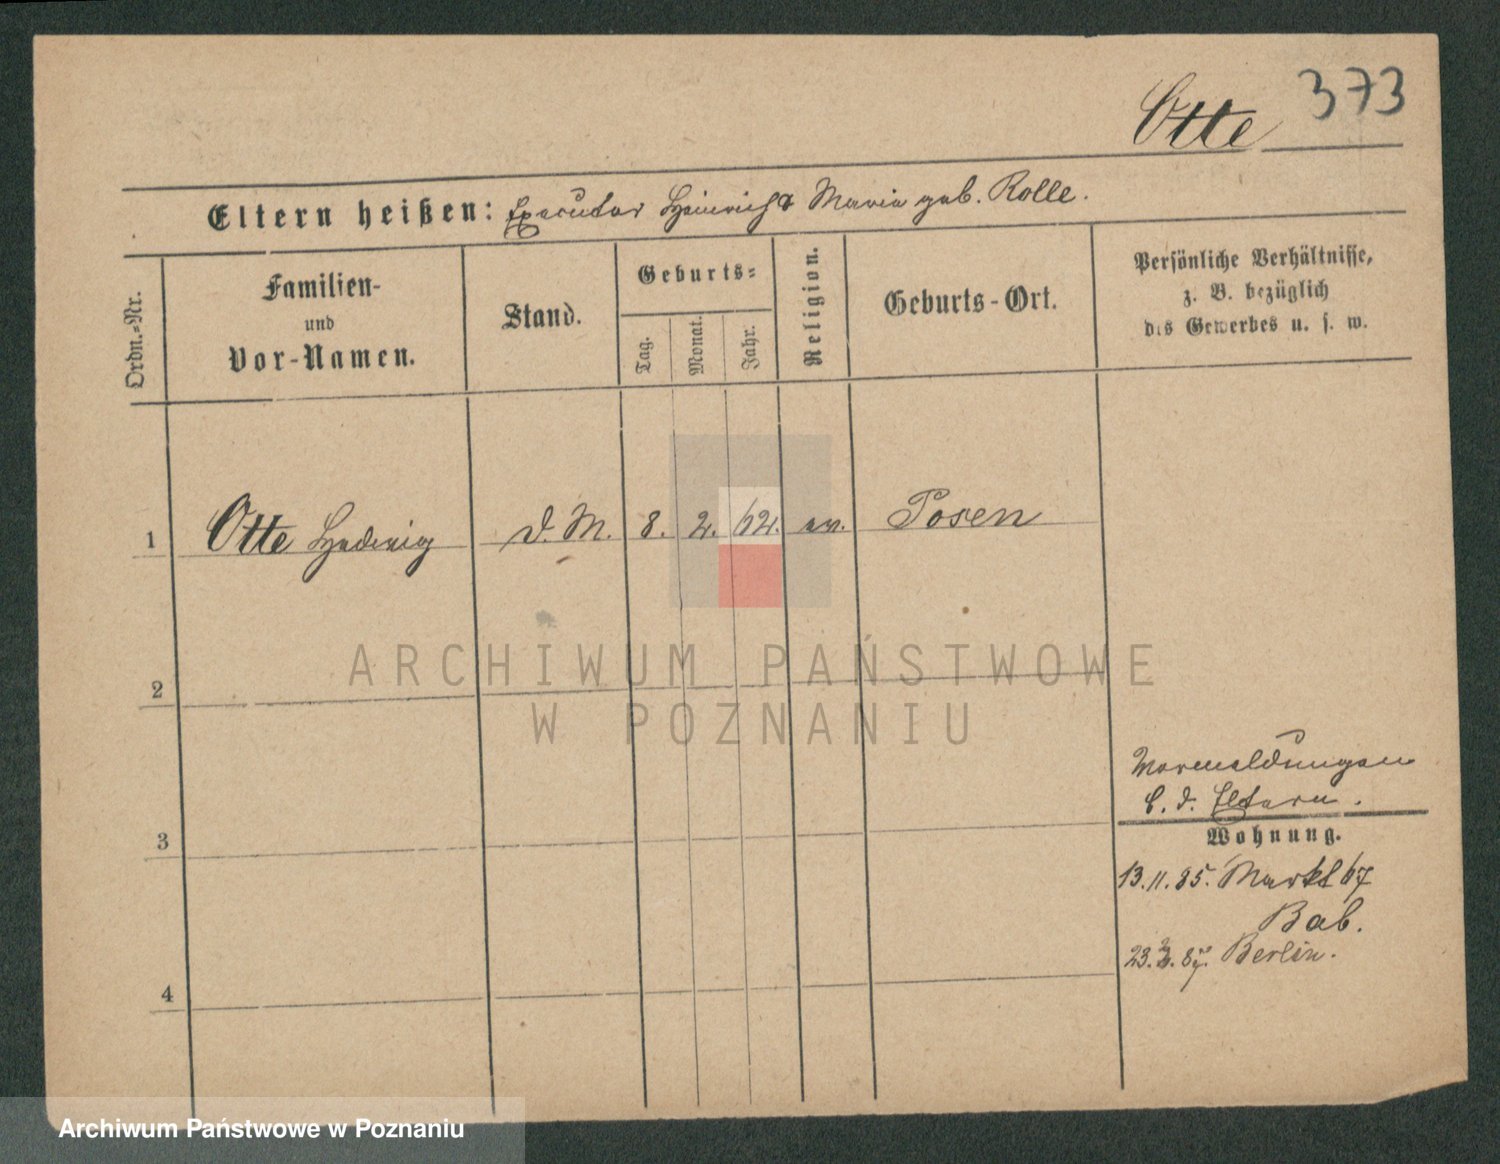 Otte 373
Eltern heißen: Executor Heinrich & Maria geb. Rolle.
Ordn.-Nr.
Familien-
und
Vor-Namen.
Stand.
Geburts-
Tag.
Monat.
Jahr.
Religion.
Geburts-Ort.
Persönliche Verhältnisse,
z. B. bezüglich
des Gewerbes u. s. w.
1 Otte Hedwig d. M. 8. 2. 62. ev. Posen
2
3
4
Vormeldungen
b. d. Eltern.
Wohnung.
13. 11. 85. Markt 67
Bab.
23. 87. Berlin.
ARCHIWUM PAŃSTWOWE
W POZNANIU
Archiwum Państwowe w Poznaniu